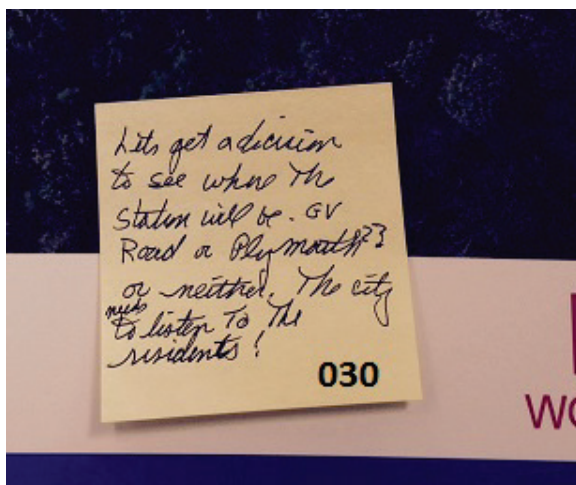 Lets get a dicision
to see where the
Station will be. GV
Road or Plymouth??
or neither. The city
needs
to listen To The
residents!
030
WO